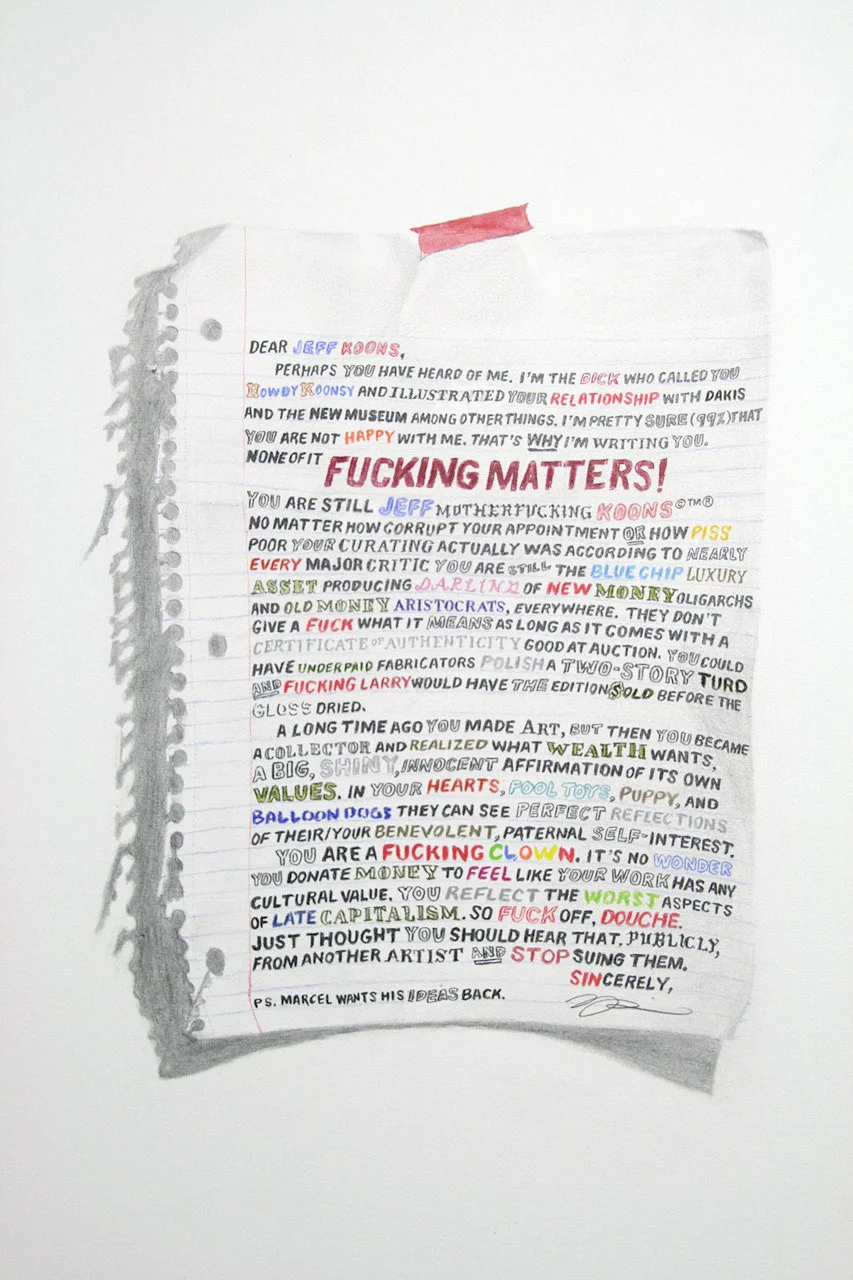 DEAR JEFF KOONS,
PERHAPS YOU HAVE HEARD OF ME. I'M THE DICK WHO CALLED YOU
HOWDY KOONSY AND ILLUSTRATED YOUR RELATIONSHIP WITH DAKIS
AND THE NEW MUSEUM AMONG OTHER THINGS. I'M PRETTY SURE (99%) THAT
YOU ARE NOT HAPPY WITH ME. THAT'S WHY I'M WRITING YOU.
NONE OF IT FUCKING MATTERS!
YOU ARE STILL JEFF MOTHERFUCKING KOONS©™®
NO MATTER HOW CORRUPT YOUR APPOINTMENT OR HOW PISS
POOR YOUR CURATING ACTUALLY WAS ACCORDING TO NEARLY
EVERY MAJOR CRITIC YOU ARE STILL THE BLUE CHIP LUXURY
ASSET PRODUCING DARLING OF NEW MONEY OLIGARCHS
AND OLD MONEY ARISTOCRATS, EVERYWHERE. THEY DON'T
GIVE A FUCK WHAT IT MEANS AS LONG AS IT COMES WITH A
CERTIFICATE OF AUTHENTICITY GOOD AT AUCTION. YOU COULD
HAVE UNDERPAID FABRICATORS POLISH A TWO-STORY TURD
AND FUCKING LARRY WOULD HAVE THE EDITION $OLD BEFORE THE
GLOSS DRIED.
A LONG TIME AGO YOU MADE ART, BUT THEN YOU BECAME
A COLLECTOR AND REALIZED WHAT WEALTH WANTS,
A BIG, SHINY, INNOCENT AFFIRMATION OF ITS OWN
VALUES. IN YOUR HEARTS, POOL TOYS, PUPPY, AND
BALLOON DOGS THEY CAN SEE PERFECT REFLECTIONS
OF THEIR/YOUR BENEVOLENT, PATERNAL SELF-INTEREST.
YOU ARE A FUCKING CLOWN. IT'S NO WONDER
YOU DONATE MONEY TO FEEL LIKE YOUR WORK HAS ANY
CULTURAL VALUE. YOU REFLECT THE WORST ASPECTS
OF LATE CAPITALISM. SO FUCK OFF, DOUCHE.
JUST THOUGHT YOU SHOULD HEAR THAT, PUBLICLY,
FROM ANOTHER ARTIST AND STOP SUING THEM.
SINCERELY,
PS. MARCEL WANTS HIS IDEAS BACK.